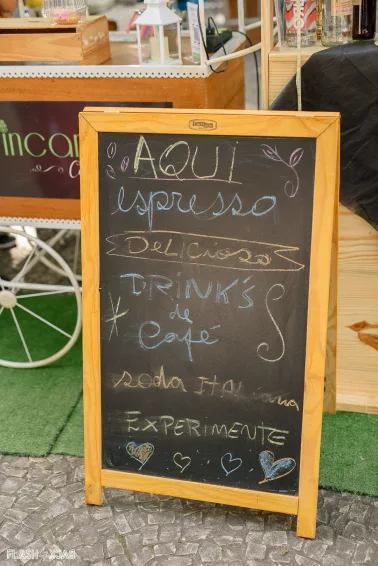 incar
AQUI
espresso
DELICIOSO
DRINK'S
de
Café
soda ITALIANA
EXPERIMENTE